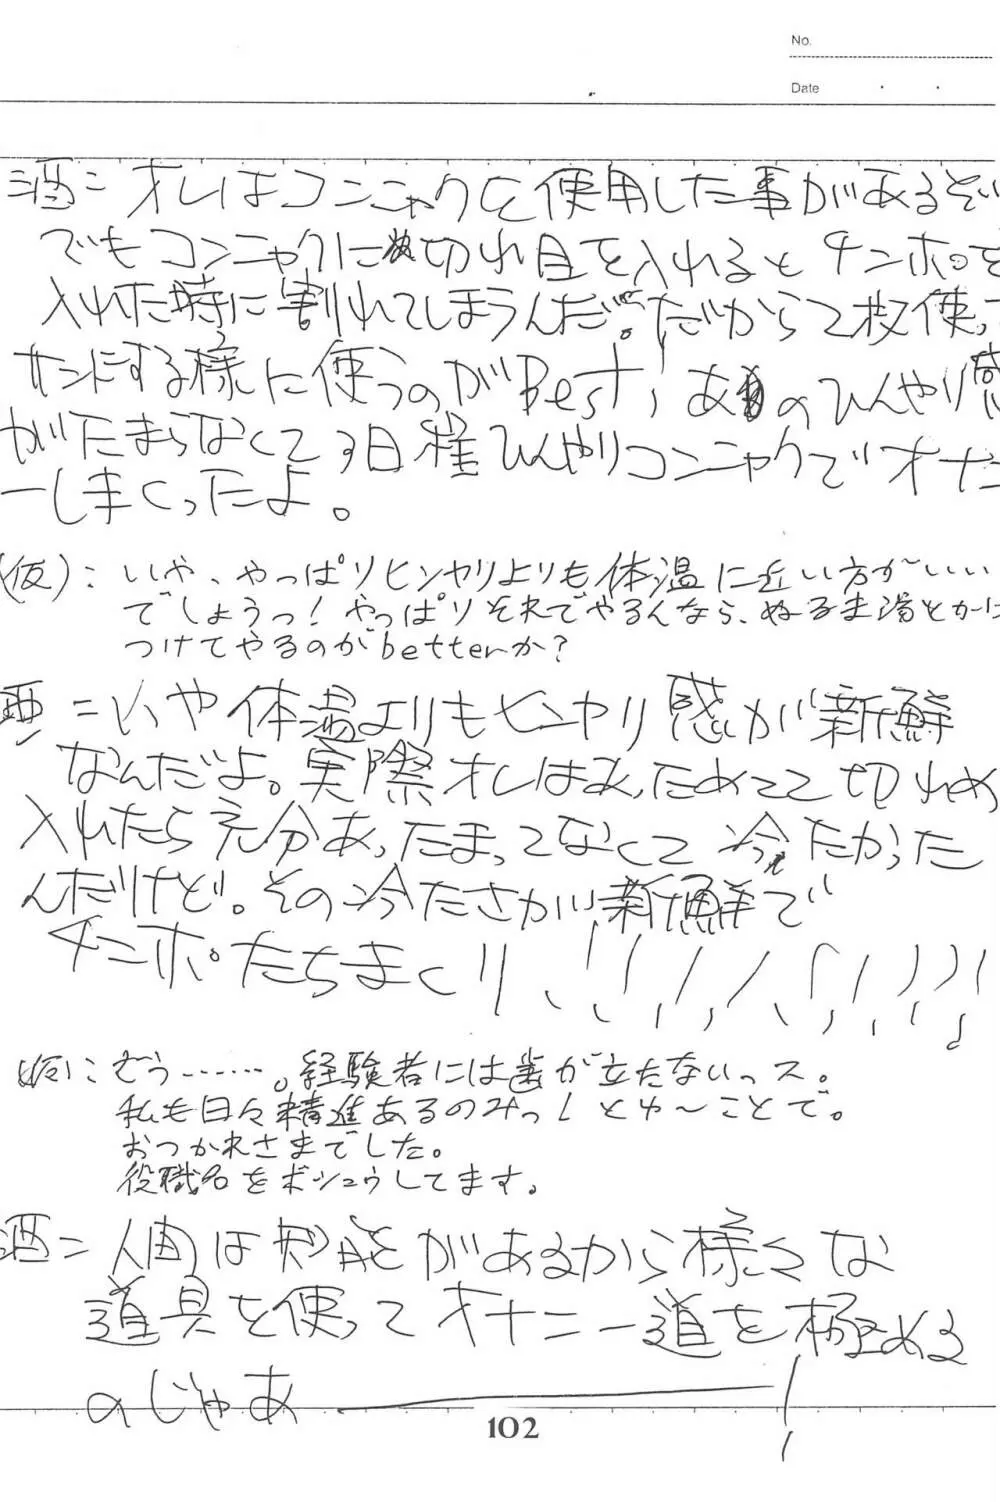 No.
Date
酒=オレはコンニャクを使用した事があるぞ
でもコンニャクに切れ目を入れるとチンポを
入れた時に割れてしまうんだ。だから2枚使っ
サンドする様に使うのがBest,あのひんやり感
がたまらなくて3日程ひんやりコンニャクでオナニ
ーしまくったよ。
(仮):いや、やっぱりヒンヤリよりも体温に近い方がいい
でしょうっ!やっぱりそれでやるんなら、ぬるま湯とかに
つけてやるのがbetterか?
酒=いや体温よりもヒンヤリ感が新鮮
なんだよ。実際オレはあっためてて切れめ
入れたら充分あったまってなくて冷たかった
んだけど。その冷たさが新鮮で
チンポたちまくり
(仮):むう……。経験者には歯が立たないっス。
私も日々精進あるのみっ!とゆ〜ことで。
おつかれさまでした。
役職名をボシュウしてます。
酒=人間は知能があるから様々な
道具を使ってオナニー道を極める
のじゃあ――!
102